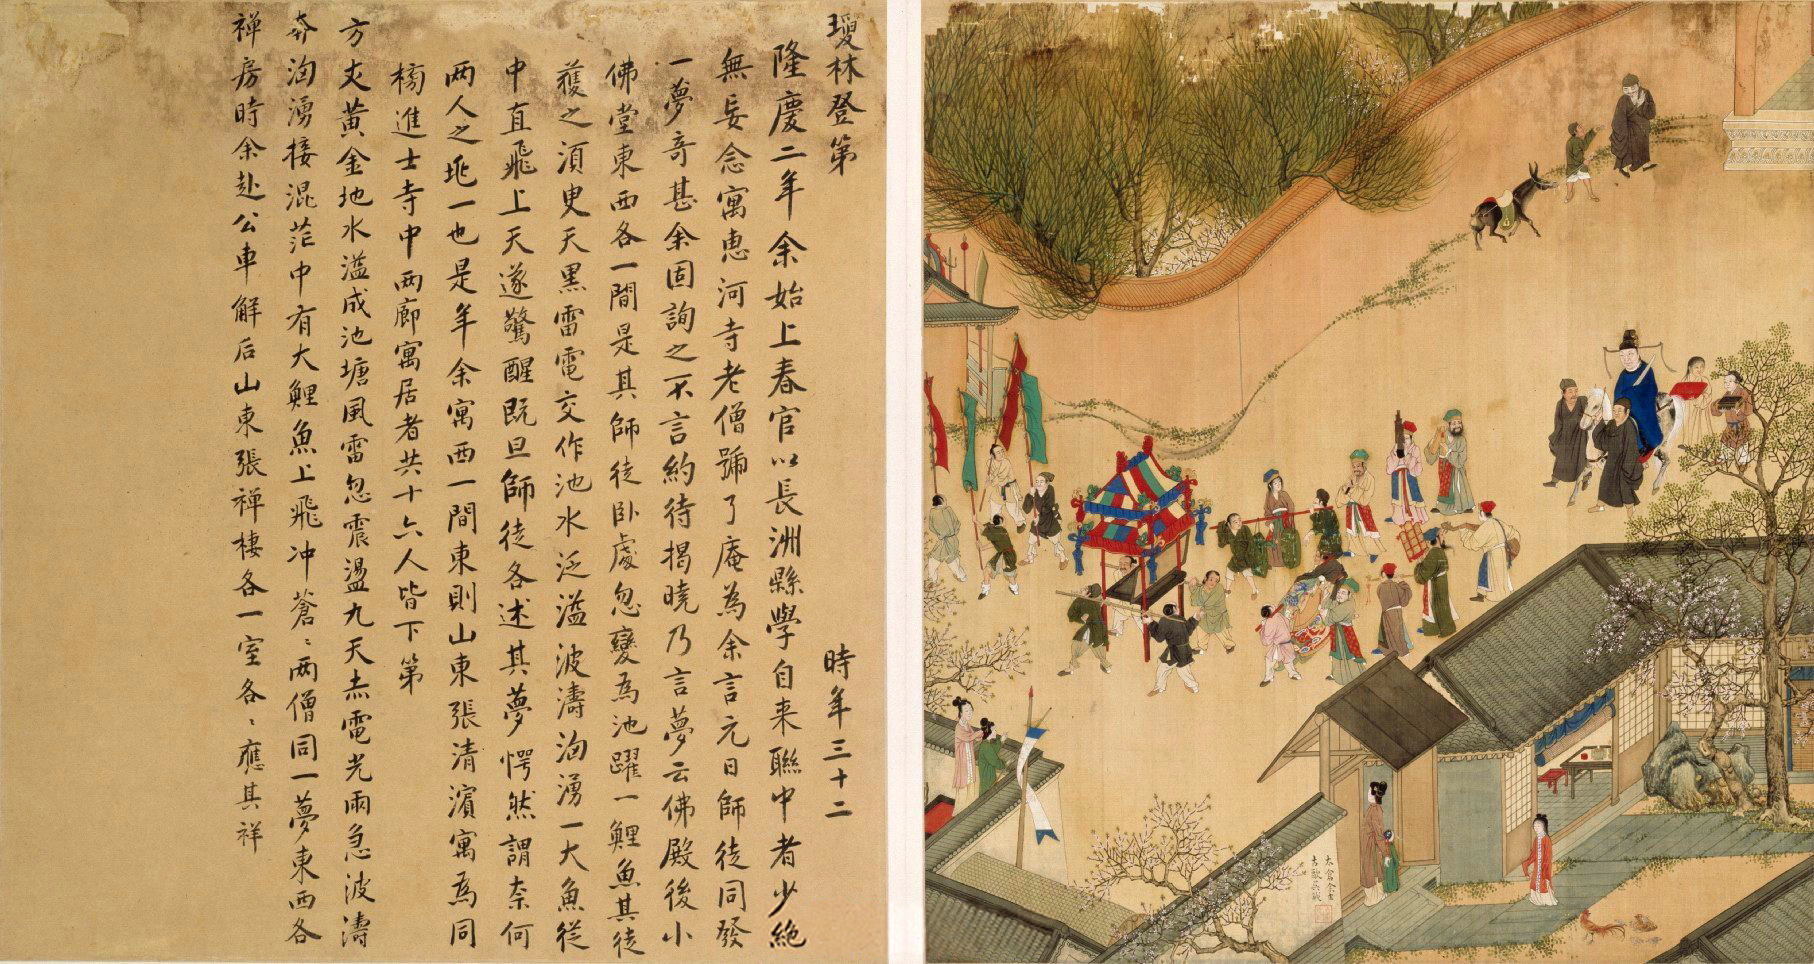 瓊林登第 時年三十二
隆慶二年余始上春官以長洲縣學自来聯中者少絶
無妄念寓惠河寺老僧號了庵為余言元日師徒同發
一夢奇甚余固詢之不言約待揭曉乃言夢云佛殿後小
佛堂東西各一間是其師徒卧處忽變為池躍一鯉魚其徒
獲之須臾天黑雷電交作池水泛溢波濤洶湧一大魚從
中直飛上天遂驚醒既旦師徒各述其夢愕然謂奈何
两人之兆一也是年余寓西一間東則山東張清濵寓為同
榜進士寺中两廊寓居者共十六人皆下第
方丈黄金地水溢成池塘風雷忽震盪九天赤電光雨急波濤
奔洶湧接混茫中有大鯉魚上飛冲蒼〻两僧同一夢東西各
禅房時余赴公車解后山東張禅棲各一室各〻應其祥
太倉余士
吉敬吳